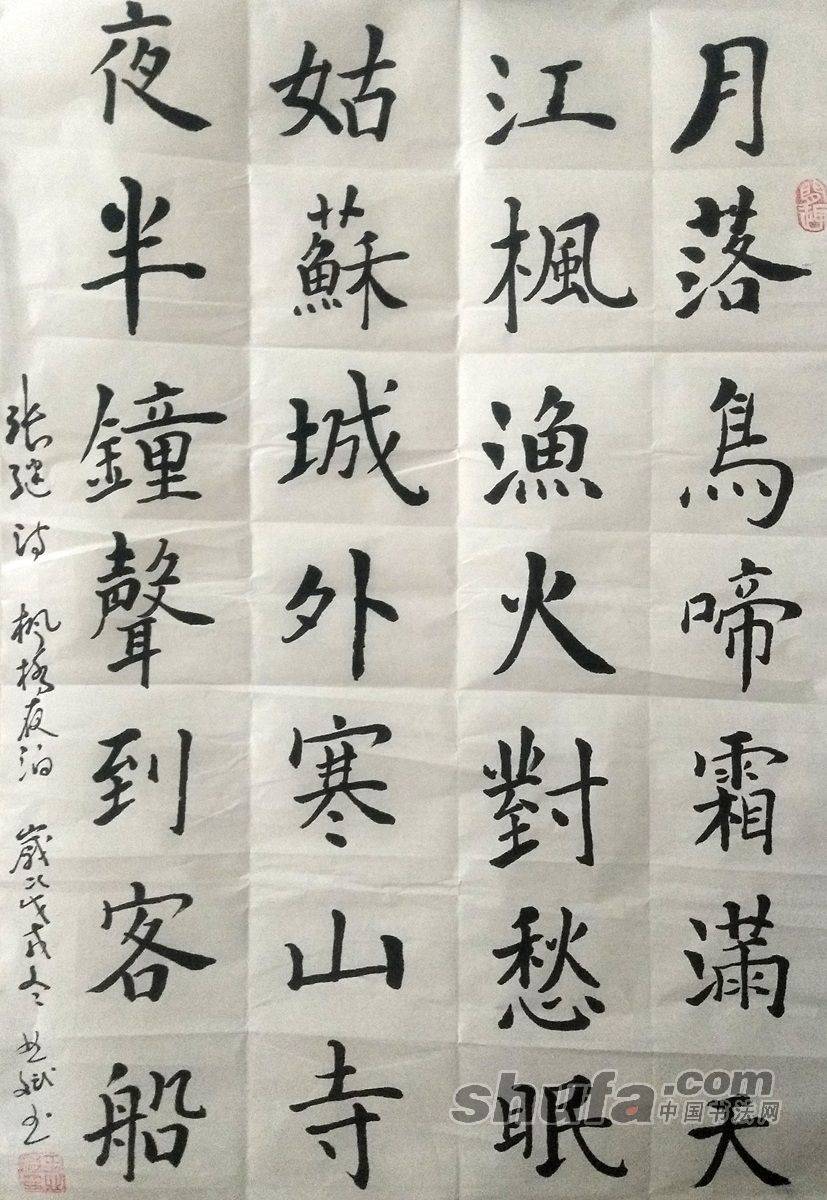 月落烏啼霜滿天
江楓漁火對愁眠
姑蘇城外寒山寺
夜半鐘聲到客船
张继诗 枫桥夜泊 歲次戊戌冬
shufa.com
中国书法网